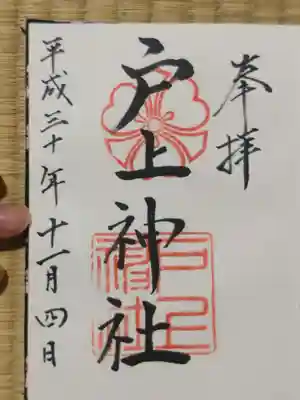 奉拝
戸上神社
平成三十年十一月四日